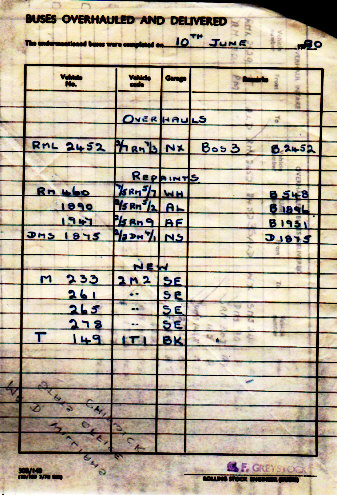 BUSES OVERHAULED AND DELIVERED
The undermentioned buses were completed on 10TH JUNE 1980
Vehicle No. Vehicle code Garage Remarks
OVERHAULS
RML 2452 2/7RM7/3 NX BOS3 B.2452
REPAINTS
RM 460 WH B548
1890 AL B1896
1947 2/5RM9 AF B1931
DMS 1875 NS D1875
NEW
M 233 2M2 SE
261 -"- SE
265 -"- SE
278 -"- SE
T 149 1T1 BK
CHISWICK
E. GREYSTOCK
ROLLING STOCK ENGINEER (BUSES)